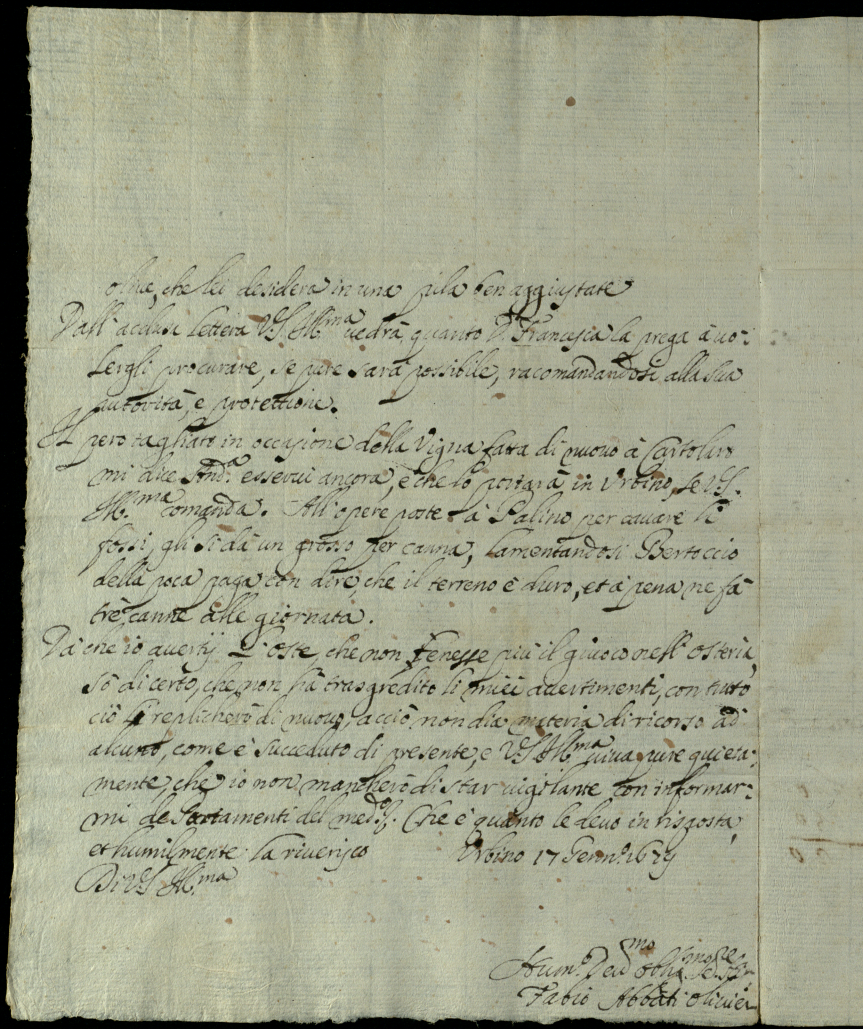 oliue, che lei desidera in una pila ben aggiustate
Dall' aclusa lettera V.S. Ill.ma uedrà, quanto D. Francesca la prega à uo:
lergli procurare, se pure sarà possibile, racomandandosi alla sua
autorità, e protettione.
Il pero tagliato in occasione della Vigna fatta di nuouo à
mi dice And.a esserui ancora, e che lo portarà in Vrbino, se V.S.
Ill.ma comanda. All' opere poste à Palino per cauare li
fossi, gli si dà un grosso per canna, lamentandosi Bertoccio
della poca paga con dire, che il terreno è duro, et à pena ne fà
trè canne alle giornata.
Da che io auertij L'oste, che non tenesse più il giuoco nell' osteria,
sò di certo, che non hà trasgredito li miei auertimenti, con tutto
ciò li replicherò di nuouo, acciò non dia materia di ricorso ad
alcuno, come è succeduto di presente, e V.S. Ill.ma uiua pure quieta:
mente, che io non mancherò di star uigilante con informar:
mi de portamenti del med.o. Che è quanto le deuo in risposta,
et humilmente la riuerisco Vrbino 17 Genn.o 1679
Di V.S. Ill.ma
Hum.o Deu.mo Obli.mo Se.re
Fabio Abbati Oliuieri